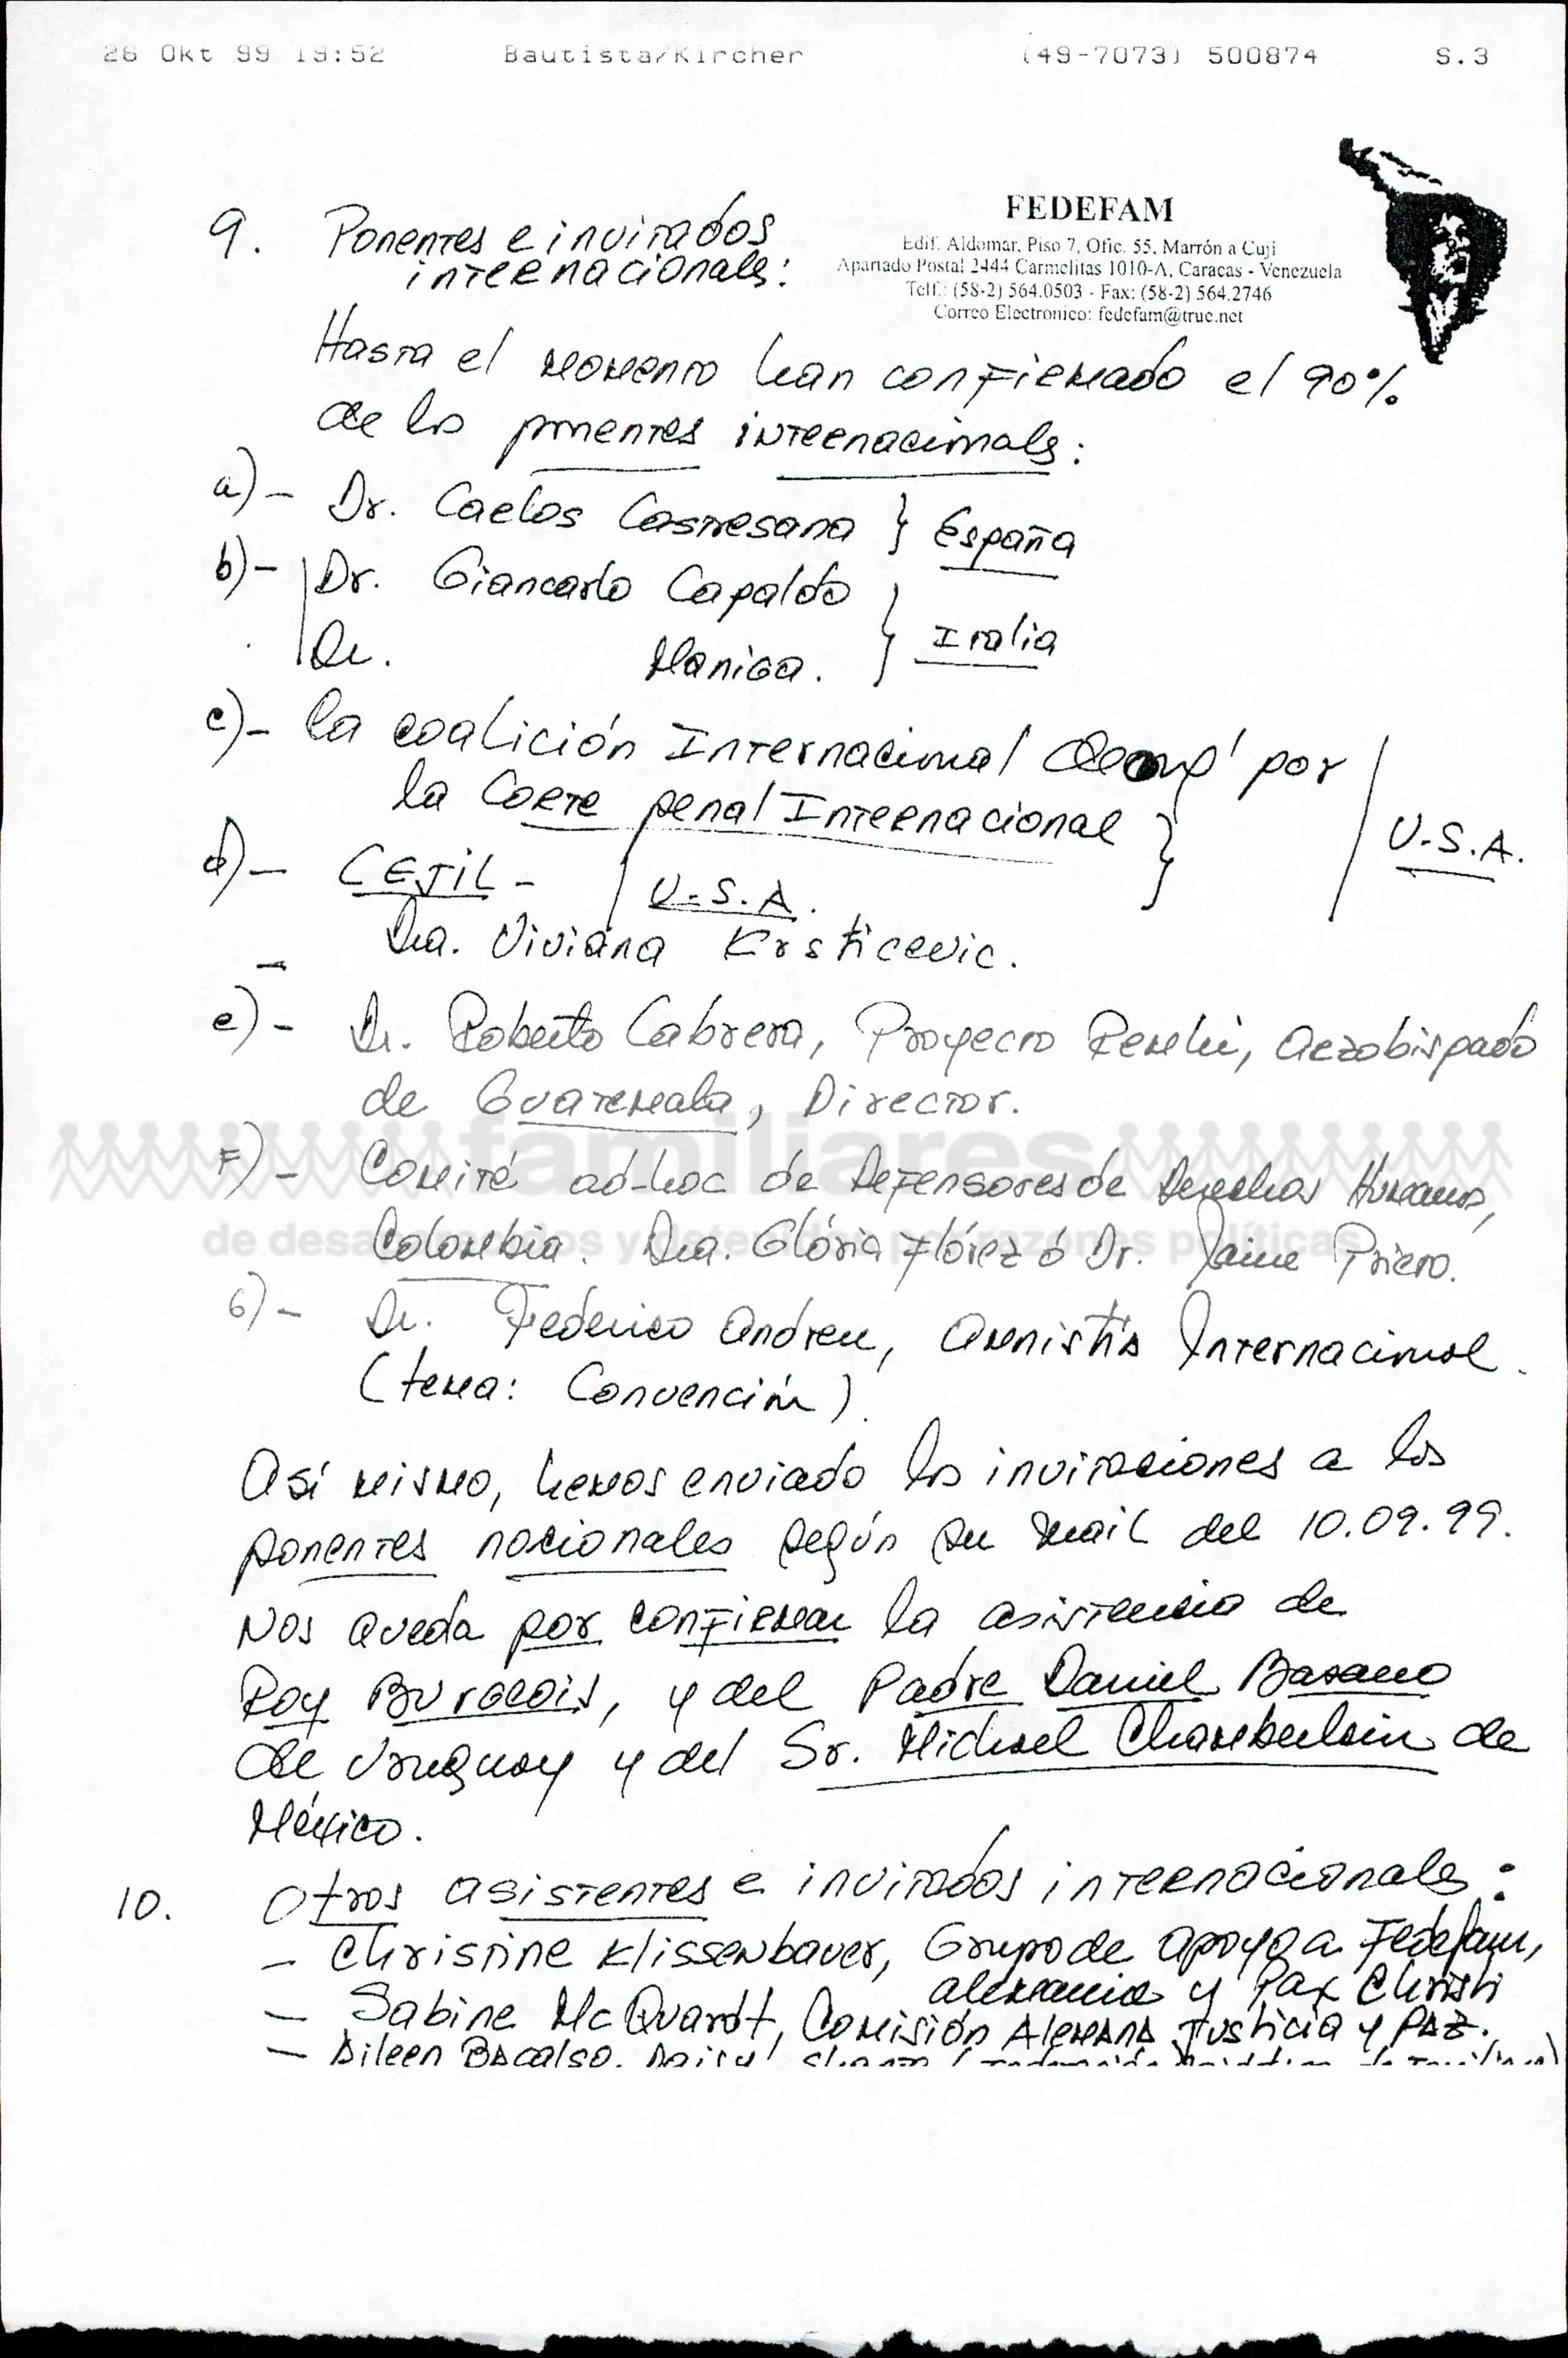 26 Okt 99 19:52 Bautista/Kircher (49-7073) 500874 S.3
FEDEFAM
Edif. Aldomar, Piso 7, Ofic. 55, Marrón a Cují
Apartado Postal 2444 Carmelitas 1010-A, Caracas - Venezuela
Telf.: (58-2) 564.0503 - Fax: (58-2) 564.2746
Correo Electronico: fedefam@true.net
9. Ponentes e invitados
internacionales:
Hasta el momento han confirmado el 90%
de los ponentes internacionales:
a)- Dr. Carlos Castresana } España
b)- Dr. Giancarlo Capaldo
Dr. Maniga. } Italia
c)- la coalición Internacional por
la Corte penal Internacional } U.S.A.
d)- CEJIL - U.S.A.
Dra. Viviana Krsticevic.
e)- Dr. Roberto Cabrera, Proyecto Remhi, Arzobispado
de Guatemala, Director.
familiares
F)- Comité ad-hoc de Defensores de Derechos Humanos,
de desa
Colombia. Dra. Glória Flórez ó Dr. Jaime Prieto.
políticas
G)- Dr. Federico Andreu, Amnistía Internacional.
(tema: Convención).
Así mismo, hemos enviado las invitaciones a los
ponentes nacionales según su mail del 10.09.99.
Nos queda por confirmar la asistencia de
Roy Burgeois, y del Padre Daniel
de Uruguay y del Sr. Michael Chamberlain de
México.
10. Otros asistentes e invitados internacionales:
- Christine Klissenbauer, Grupo de apoyo a Fedefam,
alemania y Pax Christi
- Sabine McQuardt, Comisión Alemana Justicia y Paz.
- Aileen Bacalso.